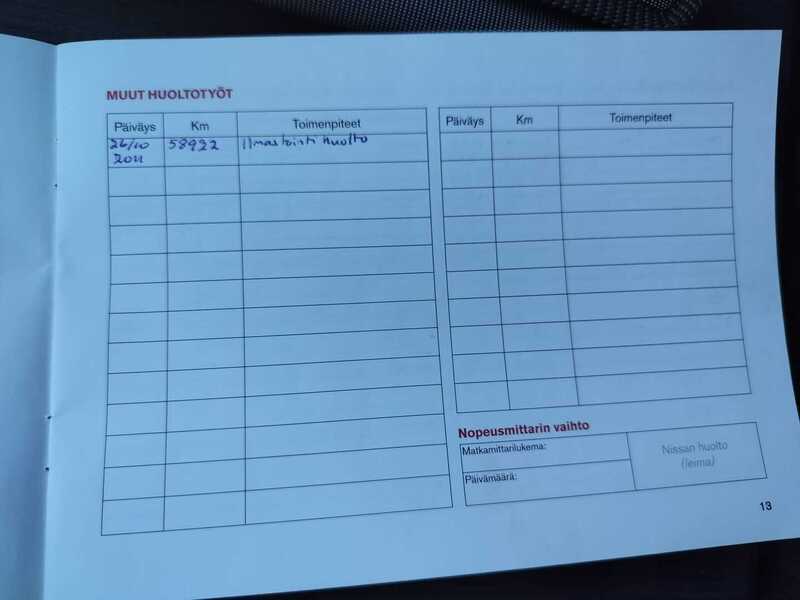 MUUT HUOLTOTYÖT
Päiväys Km Toimenpiteet
26/10 58922 Ilmastointi huolto
2011
Päiväys Km Toimenpiteet
Nopeusmittarin vaihto
Matkamittarilukema:
Päivämäärä:
Nissan huolto
(leima)
13